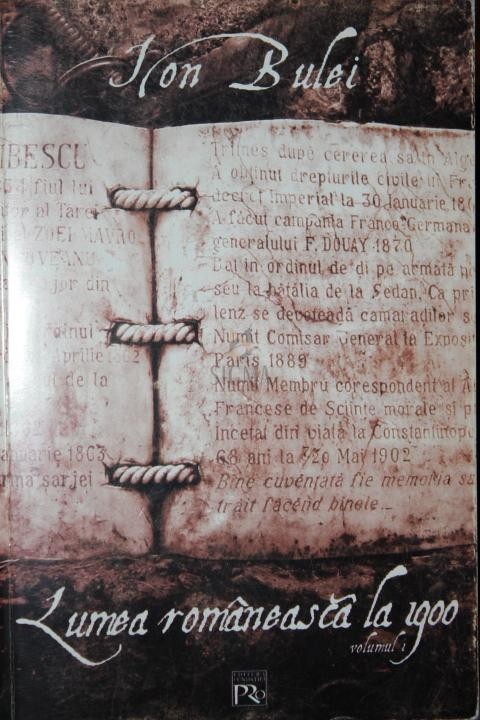 Ion Bulei
IBESCU
fiul lui
or al Tarei
ZOEI MAVRO
OVEANU
jor din
Aprilie 1862
de la
anuarie 1863
sarjei
Trimes după cererea sa în Alge
A obținut drepturile civile in Fr
decret Imperial la 30 Ianuarie 186
A făcut campania Franco-Germana
generalului F. DOUAY 1870
Dat in ordinul de di pe armată
seu la bătălia de la Sedan, Ca pri
lenz se devotează camarazilor s
Numit Comisar General la Exposit
Paris 1889
Numit Membru corespondent al A
Francese de Sciințe morale și p
Incetat din viață la Constantinopo
68 ani la 20 Mai 1902
Bine cuvêntată fie memoria sa
trăit făcênd binele...
SIGMA
Lumea românească la 1900
volumul 1
EDITURA
FUNDAȚIEI
PRO